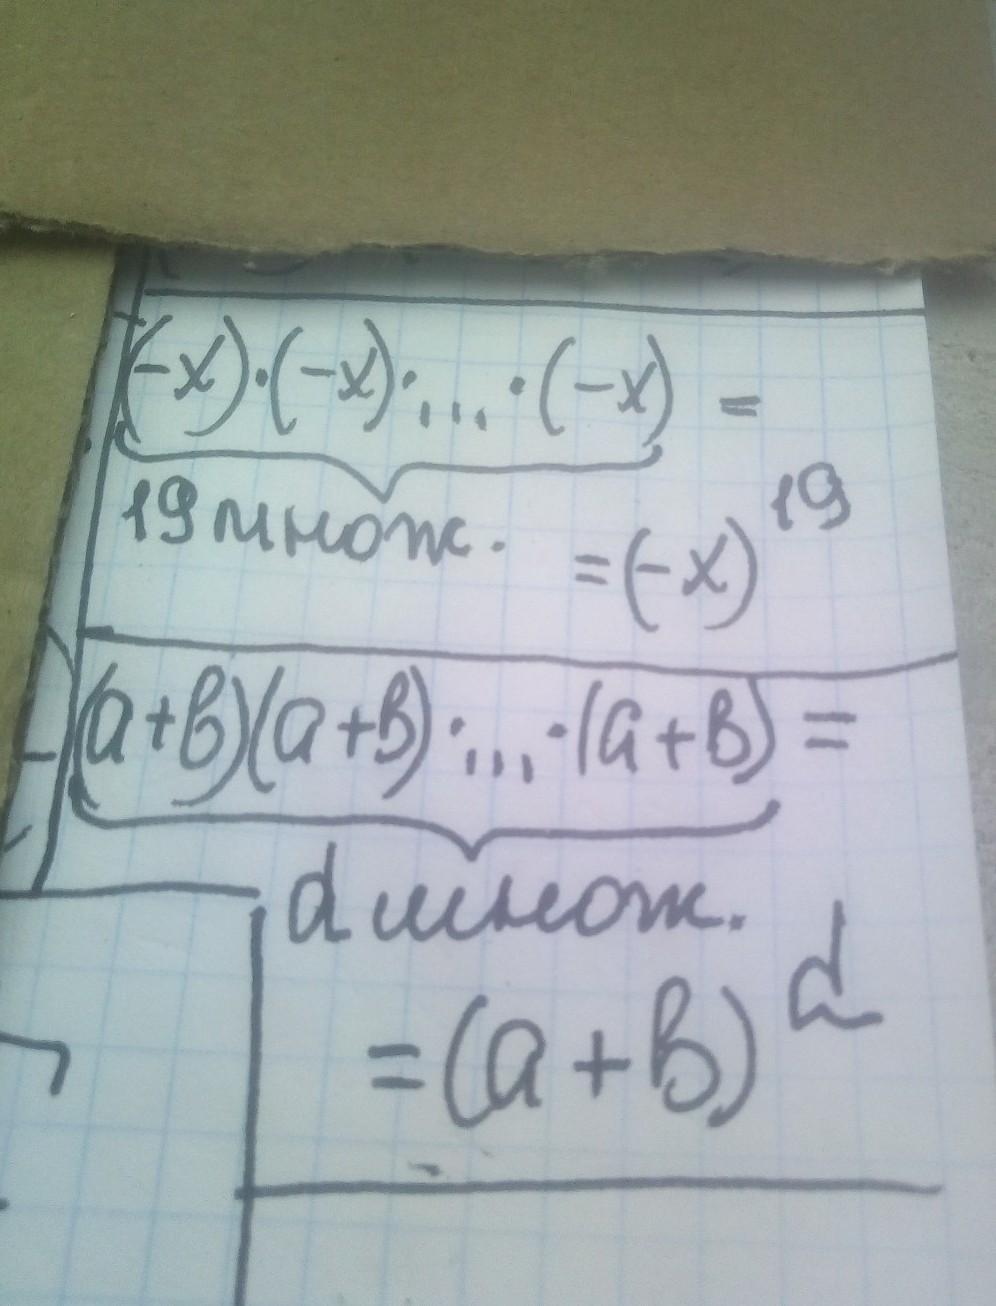 (-x)·(-x)·...·(-x) =
19 множ.
=(-x)^19
(a+b)(a+b)·...·(a+b) =
d множ.
=(a+b)^d